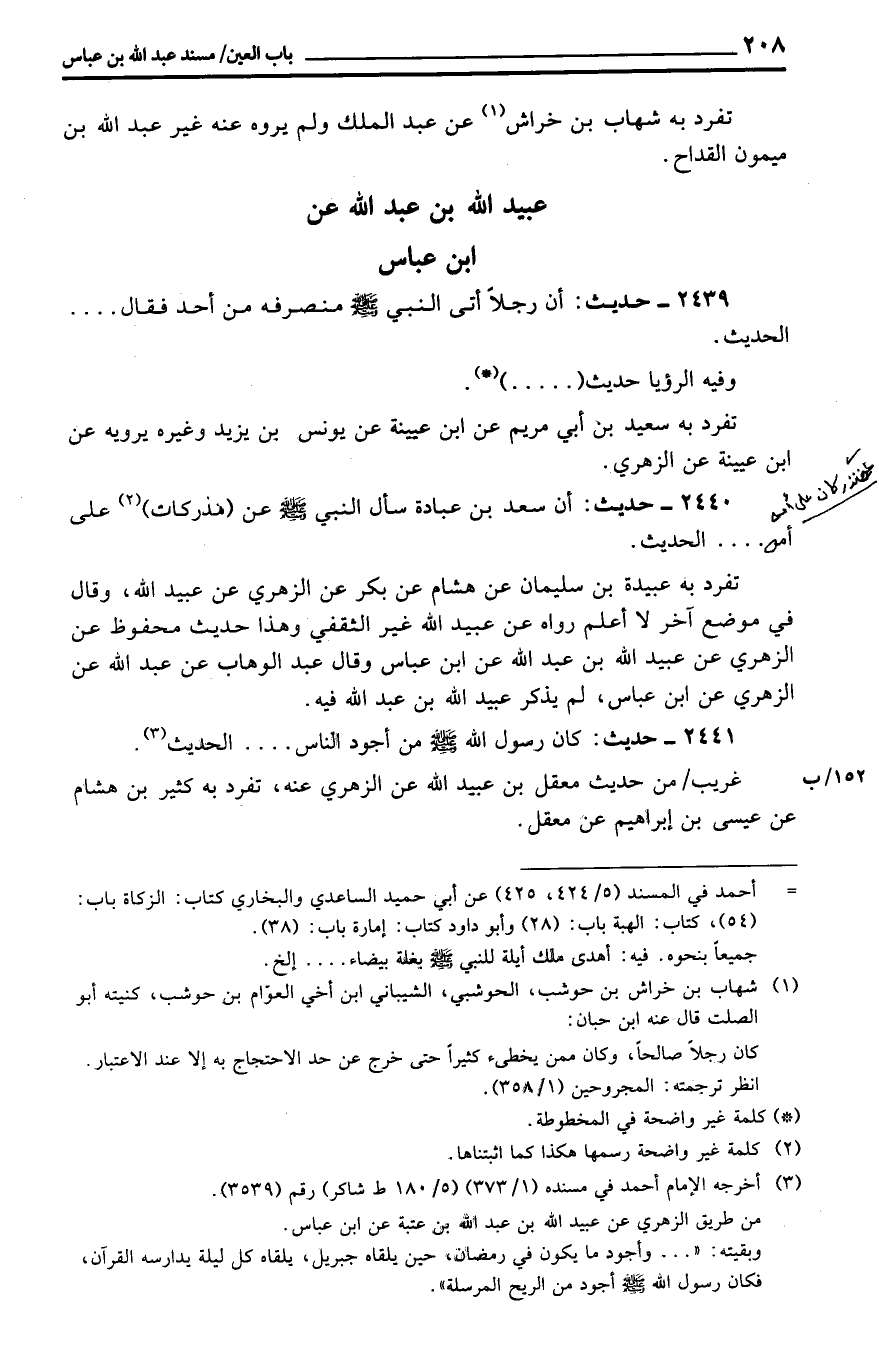 ٢٠٨ باب العين/ مسند عبد الله بن عباس
تفرد به شهاب بن خراش(١) عن عبد الملك ولم يروه عنه غير عبد الله بن
ميمون القداح.
عبيد الله بن عبد الله عن
ابن عباس
٢٤٣٩ ـ حديث: أن رجلاً أتى النبي ﷺ منصرفه من أحد فقال ....
الحديث.
وفيه الرؤيا حديث(.....)(*).
تفرد به سعيد بن أبي مريم عن ابن عيينة عن يونس بن يزيد وغيره يرويه عن
ابن عيينة عن الزهري.
٢٤٤٠ ـ حديث: أن سعد بن عبادة سأل النبي ﷺ عن (هذركات)(٢) على
.... الحديث.
كان على أمه
تفرد به عبيدة بن سليمان عن هشام عن بكر عن الزهري عن عبيد الله، وقال
في موضع آخر لا أعلم رواه عن عبيد الله غير الثقفي وهذا حديث محفوظ عن
الزهري عن عبيد الله بن عبد الله عن ابن عباس وقال عبد الوهاب عن عبد الله عن
الزهري عن ابن عباس، لم يذكر عبيد الله بن عبد الله فيه.
٢٤٤١ ـ حديث: كان رسول الله ﷺ من أجود الناس .... الحديث(٣).
١٥٢/ب غريب/ من حديث معقل بن عبيد الله عن الزهري عنه، تفرد به كثير بن هشام
عن عيسى بن إبراهيم عن معقل.
= أحمد في المسند (٥/ ٤٢٤، ٤٢٥) عن أبي حميد الساعدي والبخاري كتاب: الزكاة باب:
(٥٤)، كتاب: الهبة باب: (٢٨) وأبو داود كتاب: إمارة باب: (٣٨).
جميعاً بنحوه. فيه: أهدى ملك أيلة للنبي ﷺ بغلة بيضاء .... إلخ.
(١) شهاب بن خراش بن حوشب، الحوشبي، الشيباني ابن أخي العوّام بن حوشب، كنيته أبو
الصلت قال عنه ابن حبان:
كان رجلاً صالحاً، وكان ممن يخطىء كثيراً حتى خرج عن حد الاحتجاج به إلا عند الاعتبار.
انظر ترجمته: المجروحين (١/ ٣٥٨).
(*) كلمة غير واضحة في المخطوطة.
(٢) كلمة غير واضحة رسمها هكذا كما اثبتناها.
(٣) أخرجه الإمام أحمد في مسنده (١/ ٣٧٣) (٥/ ١٨٠ ط شاكر) رقم (٣٥٣٩).
من طريق الزهري عن عبيد الله بن عبد الله بن عتبة عن ابن عباس.
وبقيته: «... وأجود ما يكون في رمضان، حين يلقاه جبريل، يلقاه كل ليلة يدارسه القرآن،
فكان رسول الله ﷺ أجود من الريح المرسلة».